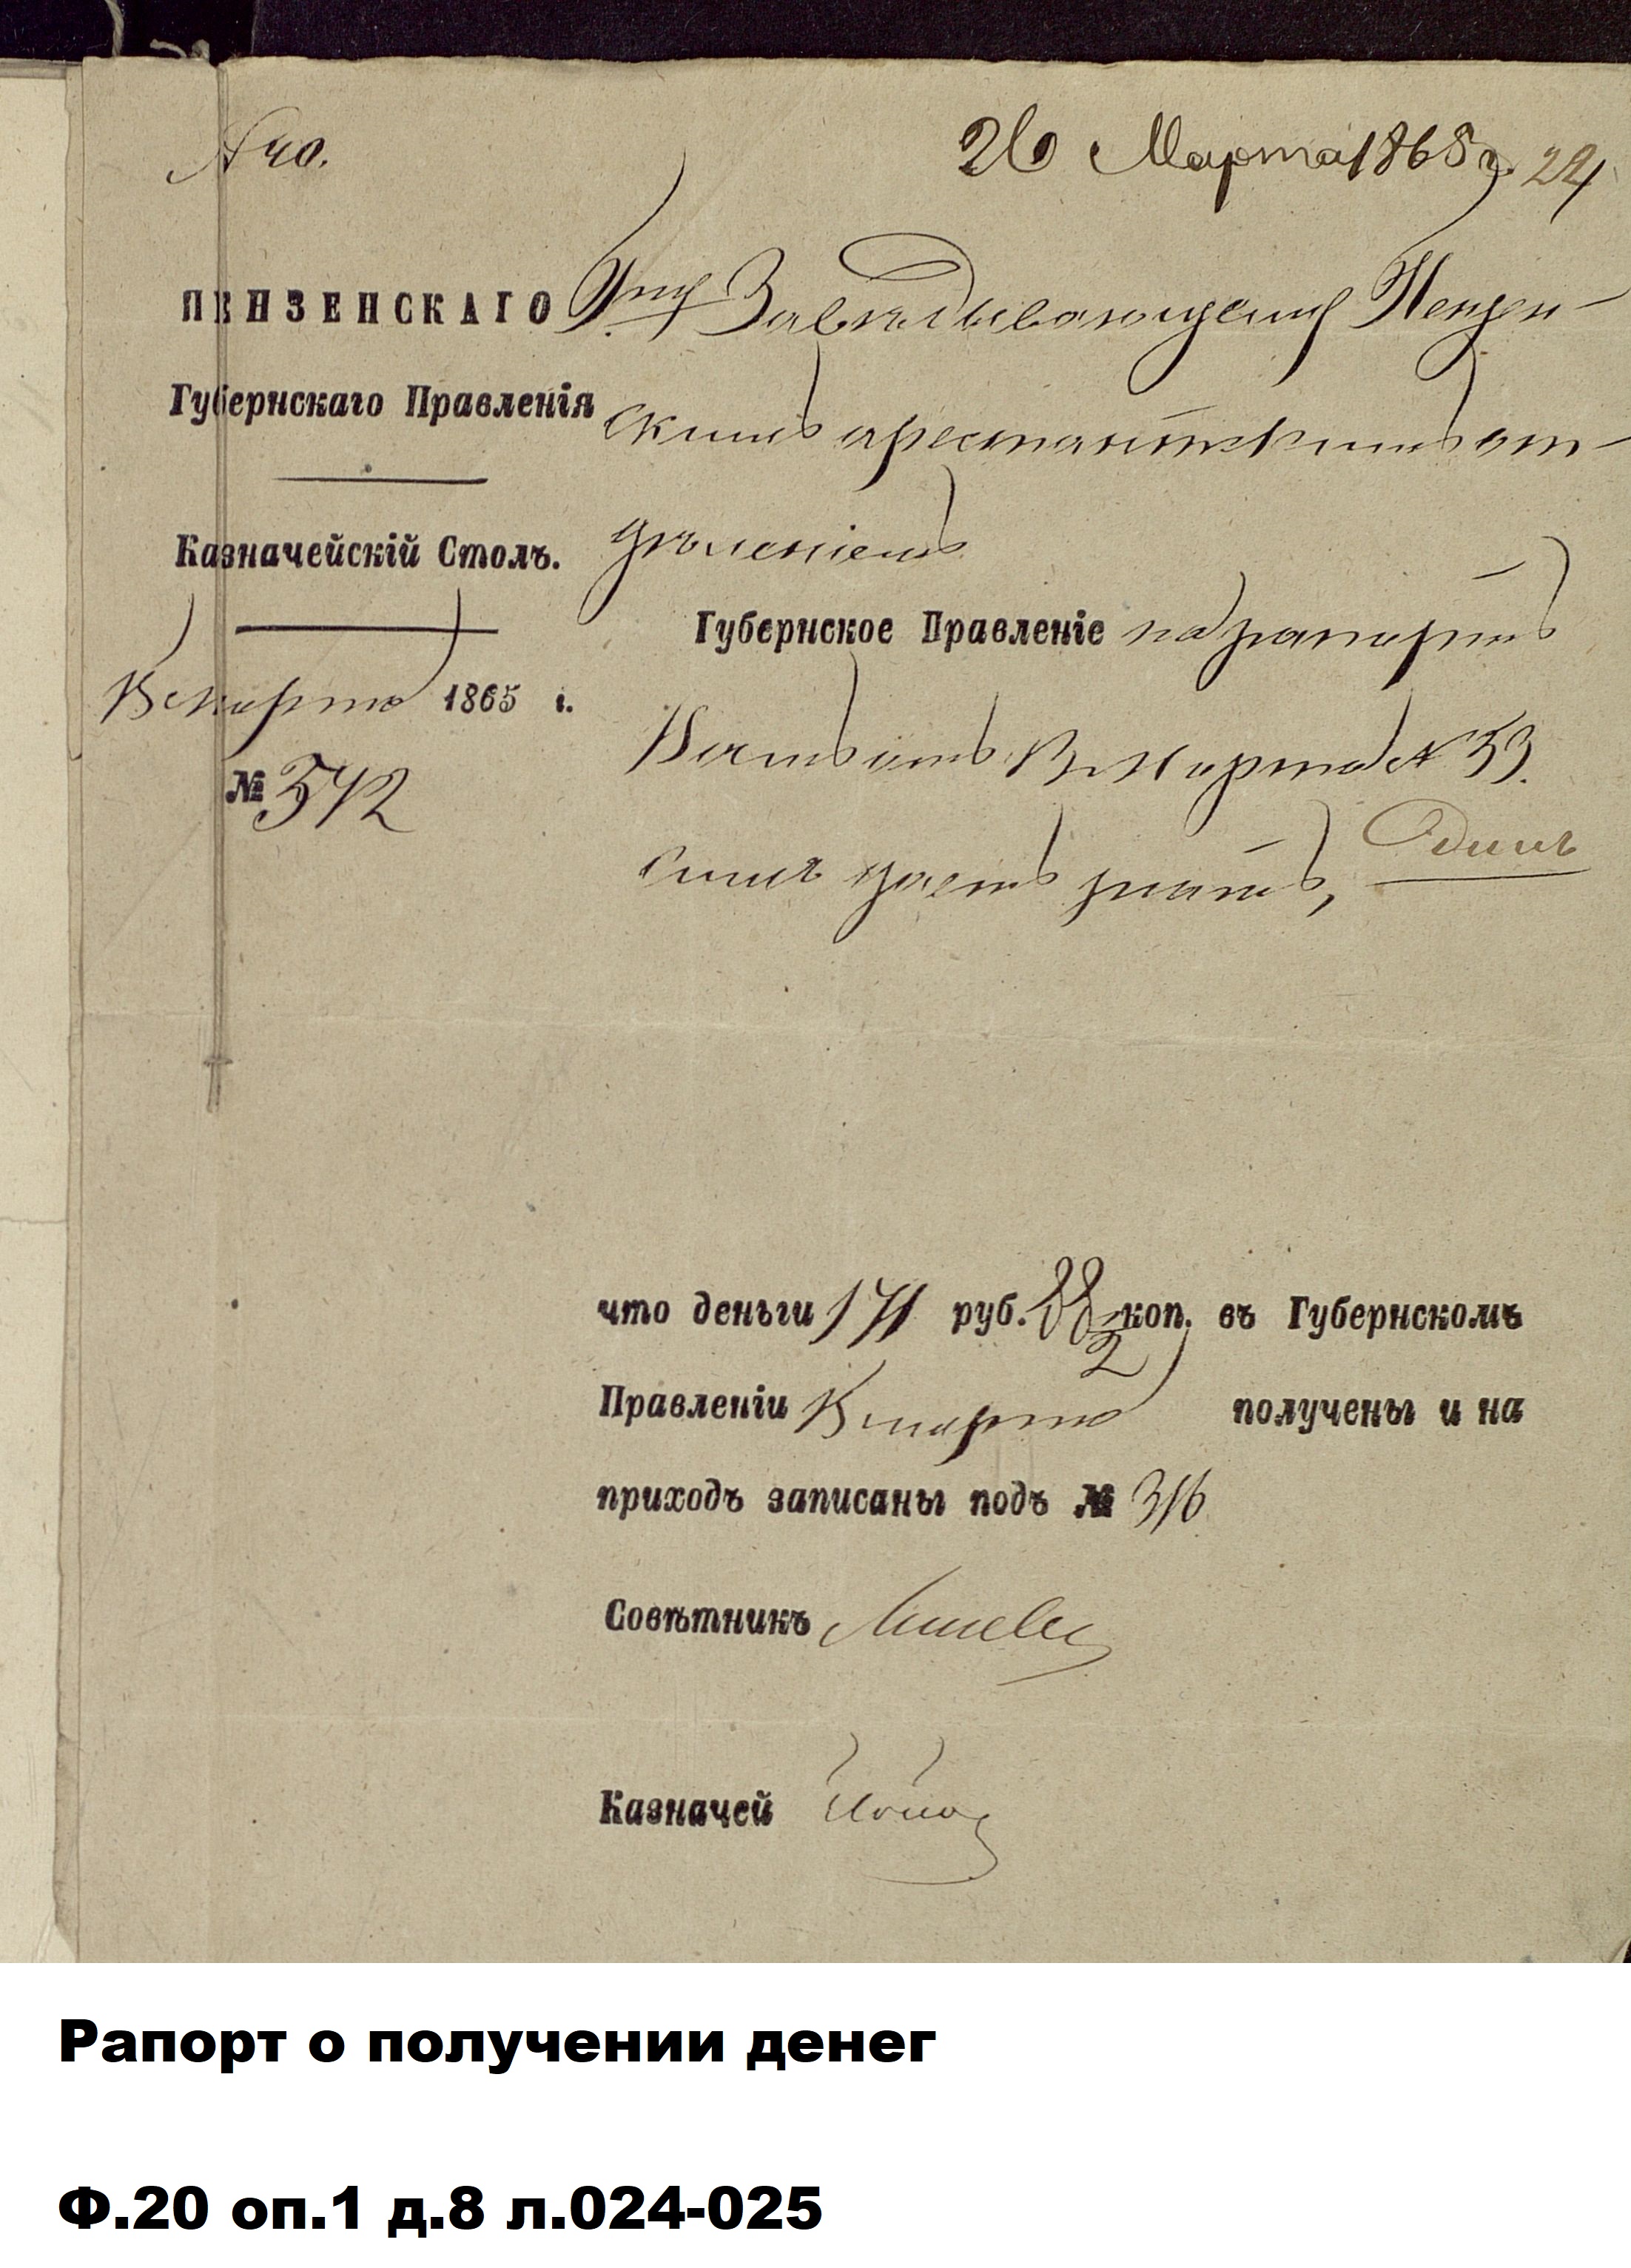 № 40.
26 Марта 1865 г. 24
ПЕНЗЕНСКАГО
Губернскаго Правленія
Казначейскій Столъ.
Марта 1865 г.
№ 542
Г-ну Завѣдывающему Пензен-
скимъ арестантскимъ от-
дѣленіемъ
Губернское Правленіе на рапортъ
Вашъ отъ Марта № 53.
симъ даетъ знать, Одинъ
что деньги 171 руб. 88 1/2 коп. въ Губернскомъ
Правленіи марта получены и на
приходъ записаны подъ № 316
Совѣтникъ
Казначей
Рапорт о получении денег
Ф.20 оп.1 д.8 л.024-025